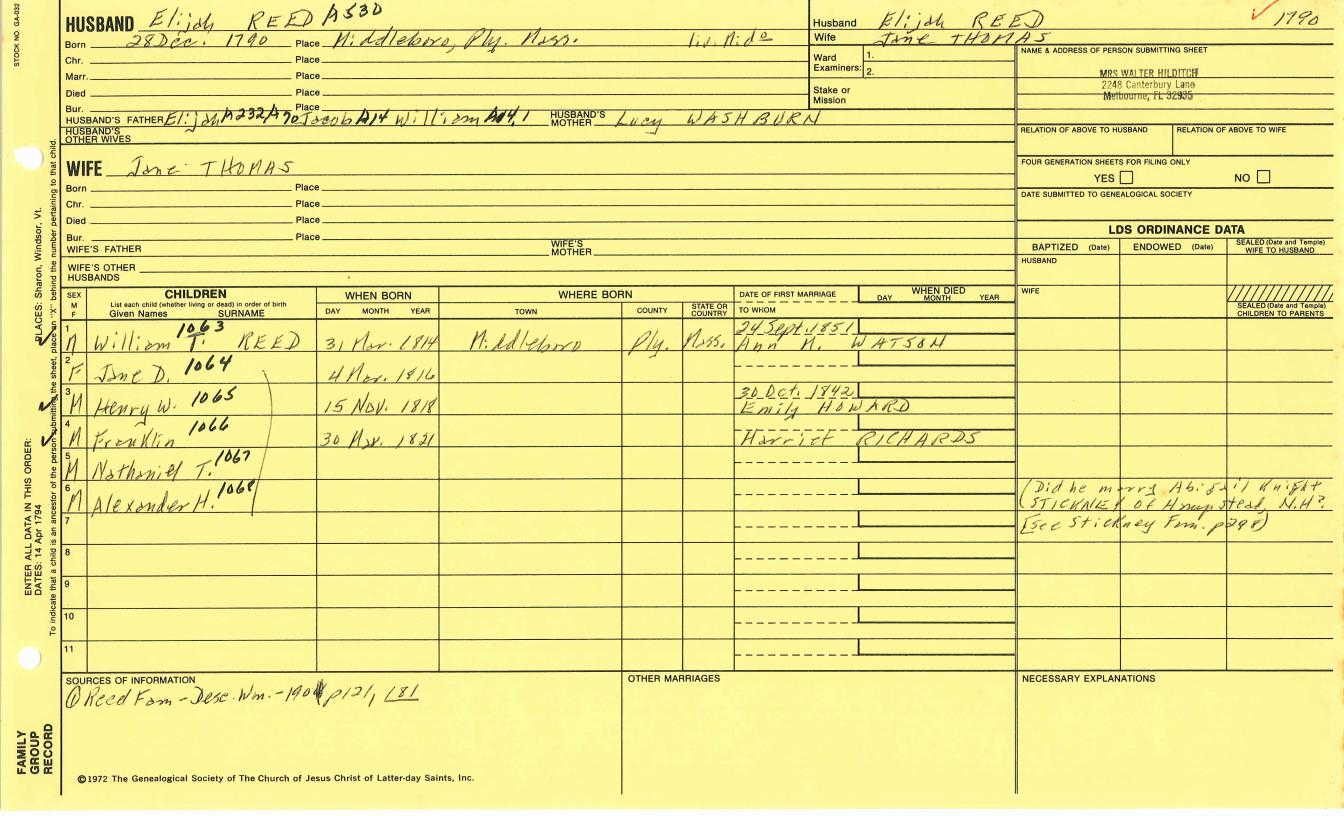 STOCK NO. GA-032
HUSBAND Elijah REED A530
Born 28 Dec. 1790 Place Middleboro, Ply. Mass.
Chr. Place
Marr. Place
Died Place
Bur. Place
HUSBAND'S FATHER Elijah A232 A70 Jacob A14 William A14,1 HUSBAND'S MOTHER Lucy WASHBURN
HUSBAND'S OTHER WIVES
Husband Elijah REED 1790
Wife Jane THOMAS
Ward Examiners: 1.
2.
Stake or Mission
NAME & ADDRESS OF PERSON SUBMITTING SHEET
MRS WALTER HILDITCH
2248 Canterbury Lane
Melbourne, FL 32935
RELATION OF ABOVE TO HUSBAND RELATION OF ABOVE TO WIFE
FOUR GENERATION SHEETS FOR FILING ONLY
YES NO
DATE SUBMITTED TO GENEALOGICAL SOCIETY
WIFE Jane THOMAS
Born Place
Chr. Place
Died Place
Bur. Place
WIFE'S FATHER WIFE'S MOTHER
WIFE'S OTHER HUSBANDS
LDS ORDINANCE DATA
BAPTIZED (Date) ENDOWED (Date) SEALED (Date and Temple) WIFE TO HUSBAND
HUSBAND
WIFE
SEALED (Date and Temple) CHILDREN TO PARENTS
SEX M F
CHILDREN
List each child (whether living or dead) in order of birth
Given Names SURNAME
WHEN BORN
DAY MONTH YEAR
WHERE BORN
TOWN COUNTY STATE OR COUNTRY
DATE OF FIRST MARRIAGE
TO WHOM
WHEN DIED
DAY MONTH YEAR
1 M William T. 1063 REED 31 Mar. 1814 Middleboro Ply. Mass. 24 Sept. 1851 Ann M. WATSON
2 F Jane D. 1064 4 Mar. 1816
3 M Henry W. 1065 15 Nov. 1818 30 Oct. 1842 Emily HOWARD
4 M Franklin 1066 30 Mar. 1821 Harriet RICHARDS
5 M Nathaniel T. 1067
6 M Alexander H. 1068
(Did he marry Abigail Knight
STICKNEY of Hampstead, N.H?
[See Stickney Fam. p298)
7
8
9
10
11
SOURCES OF INFORMATION
① Reed Fam - Desc. Wm. - 1901 p121, 181
OTHER MARRIAGES
NECESSARY EXPLANATIONS
©1972 The Genealogical Society of The Church of Jesus Christ of Latter-day Saints, Inc.
FAMILY GROUP RECORD
ENTER ALL DATA IN THIS ORDER:
DATES: 14 Apr 1794
PLACES: Sharon, Windsor, Vt.
To indicate that a child is an ancestor of the person submitting the sheet, place an "X" behind the number pertaining to that child.